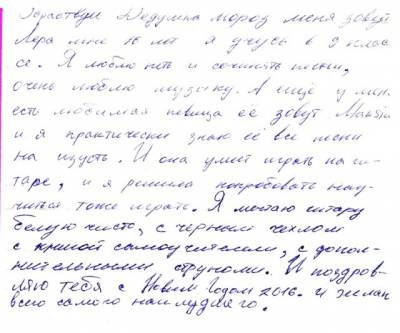 Здраствуй Дедушка мороз меня зовут
Лера мне 16 лет я учусь в 9 клас-
се. Я люблю петь и сочинять песни,
очень люблю музыку. А ещё у меня
есть любимая певица её зовут
и я практически знаю её все песни
на изусть. И она умеет играть на ги-
таре, и я решила попробовать нау-
читься тоже играть. Я мечтаю гитару
белую чисто, с чёрным чехлом
с книгой самоучителем, с допол-
нительными струнами. И поздрав-
ляю тебя с Новым Годом 2016. и желаю
всего самого наилудшего.